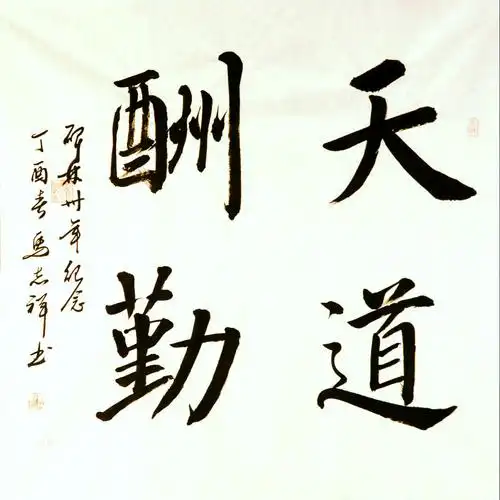 天道
酬勤
碑林卅年纪念
丁酉春马志祥书